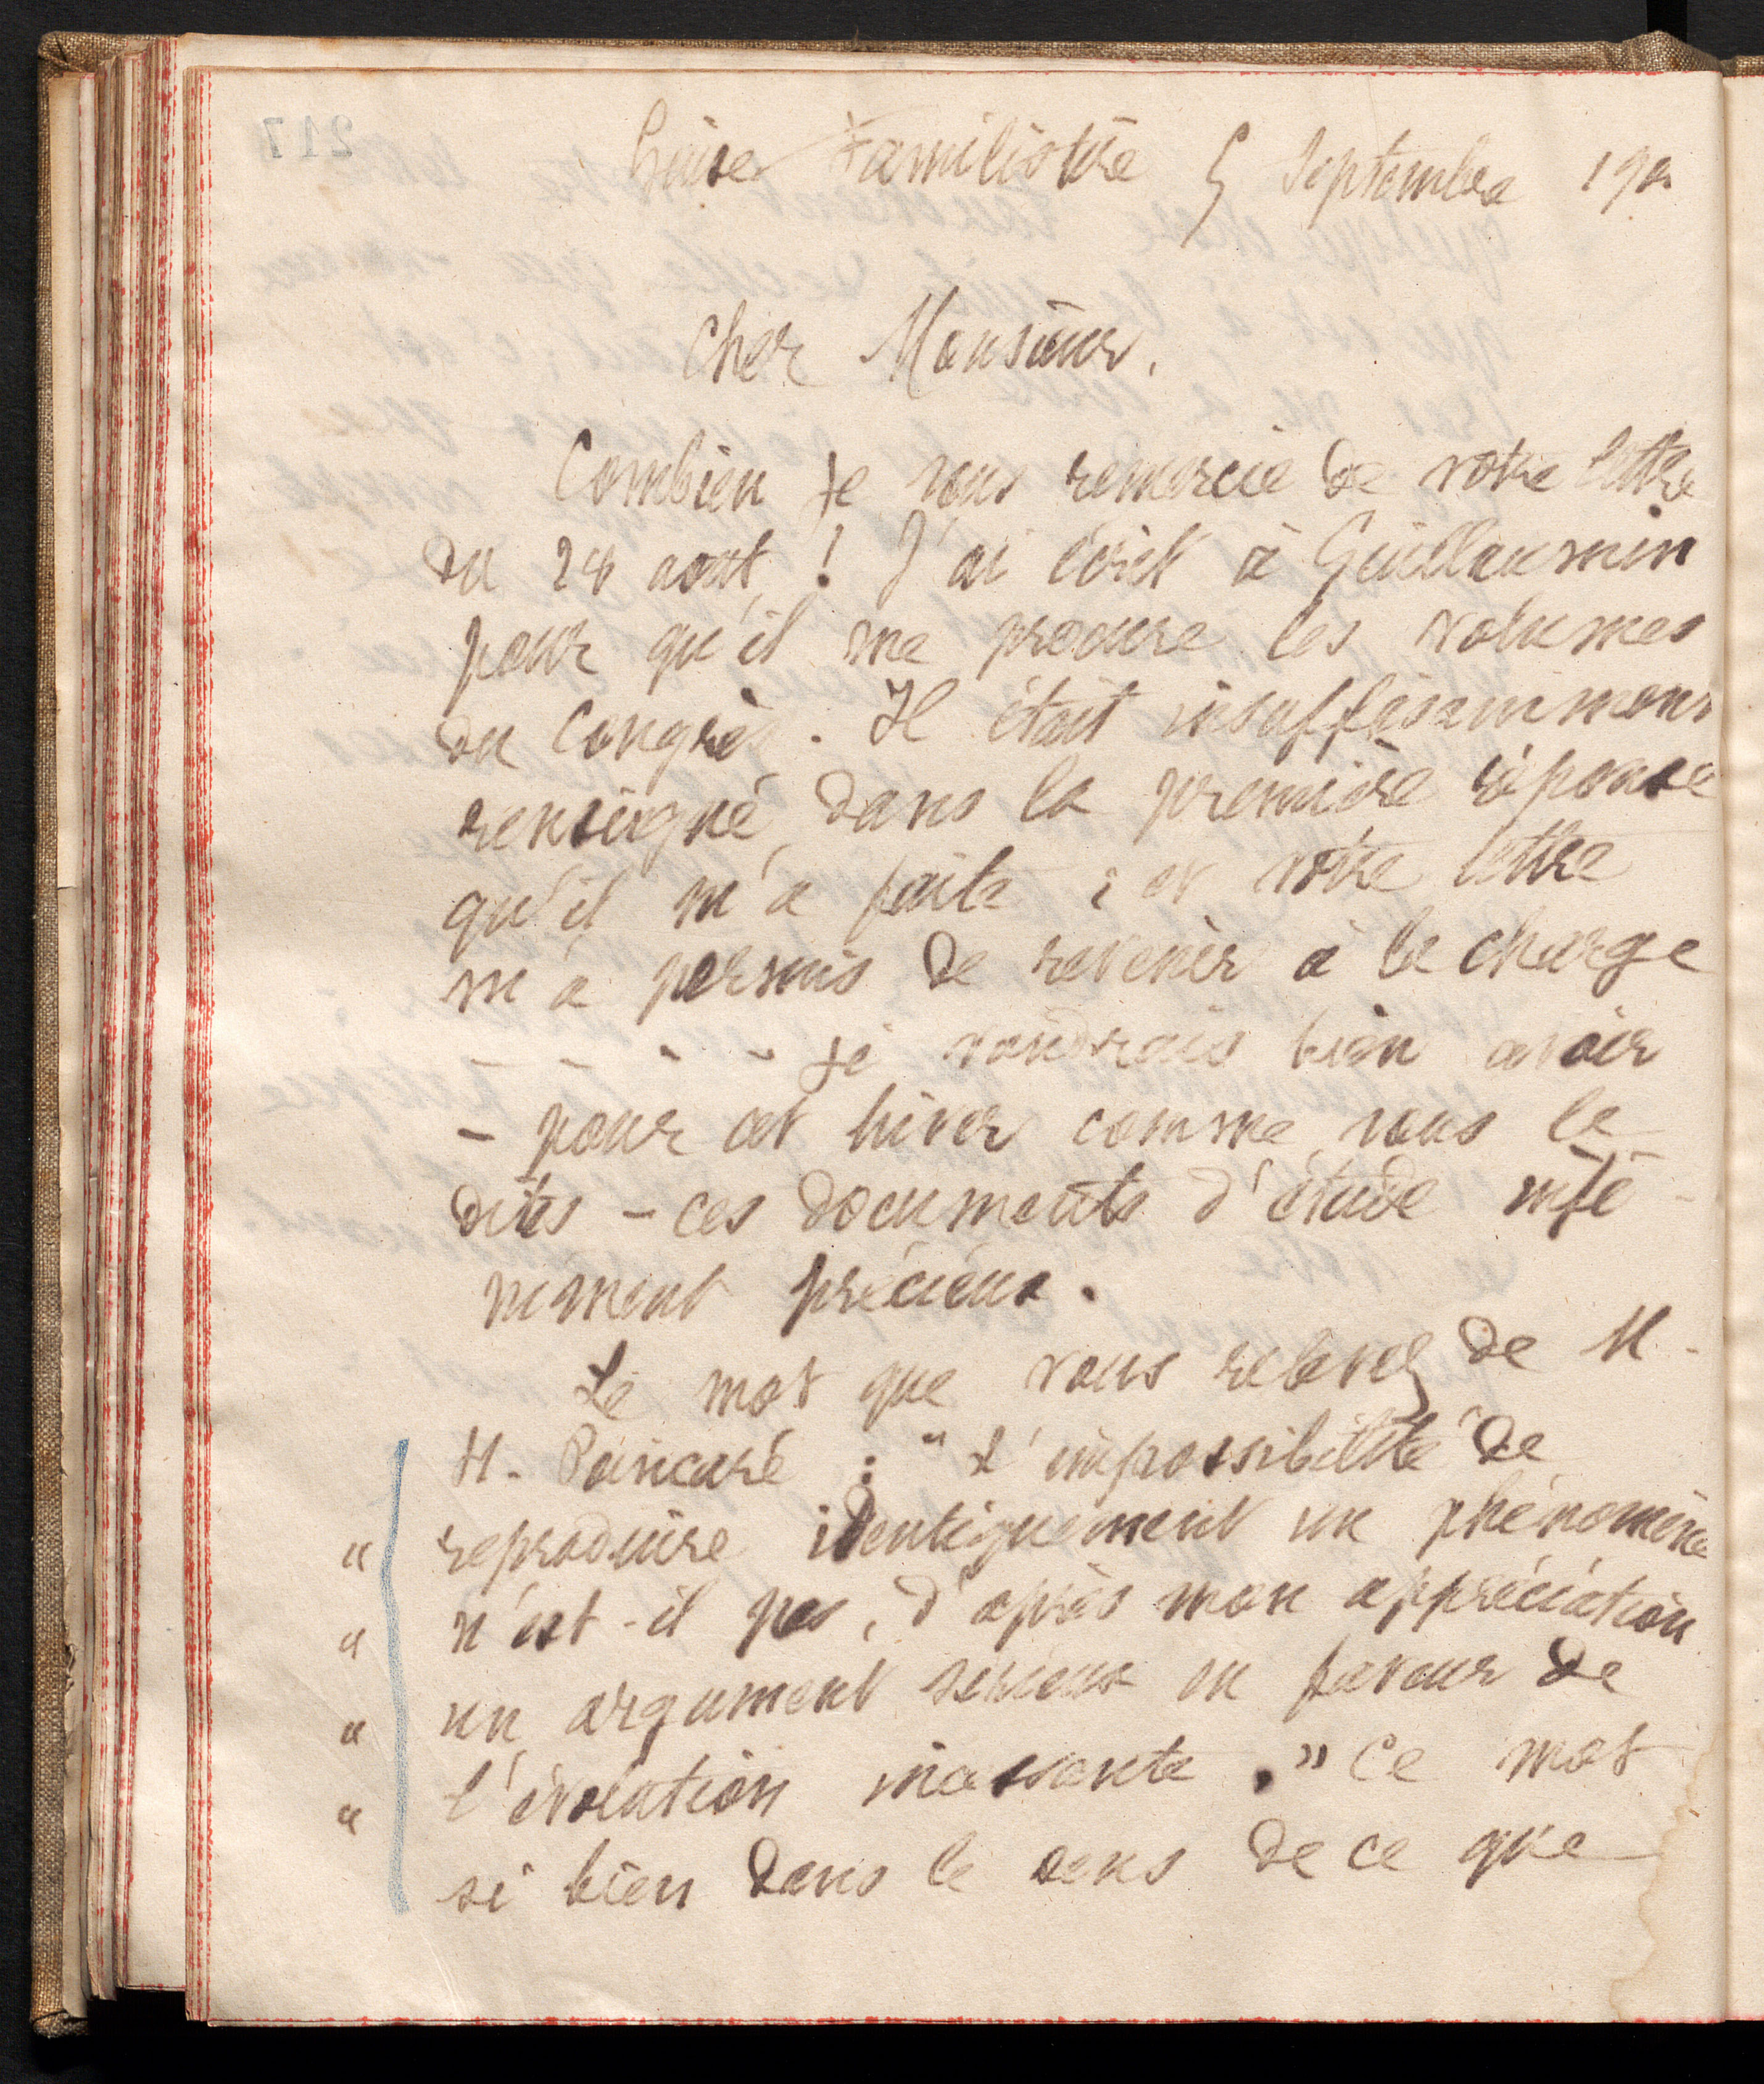 217
Guise Familistère 5 Septembre 190
Cher Monsieur.
Combien je vous remercie de votre lettre
du 28 août ! J'ai écrit à Guillaumin
pour qu'il me procure les volumes
du Congrès. Il était insuffisamment
renseigné, dans la première réponse
qu'il m'a faite ; et votre lettre
m'a permis de revenir à la charge
- - - - Je voudrais bien avoir
- pour cet hiver comme vous le
dites - ces documents d'étude infi-
niment précieux.
Le mot que vous relevez de M.
H. Poincaré : "L'impossibilité de
" reproduire identiquement un phénomène
" n'est-il pas, d'après mon appréciation
" un argument sérieux en faveur de
" l'évolution incessante." Ce mot
si bien dans le sens de ce que